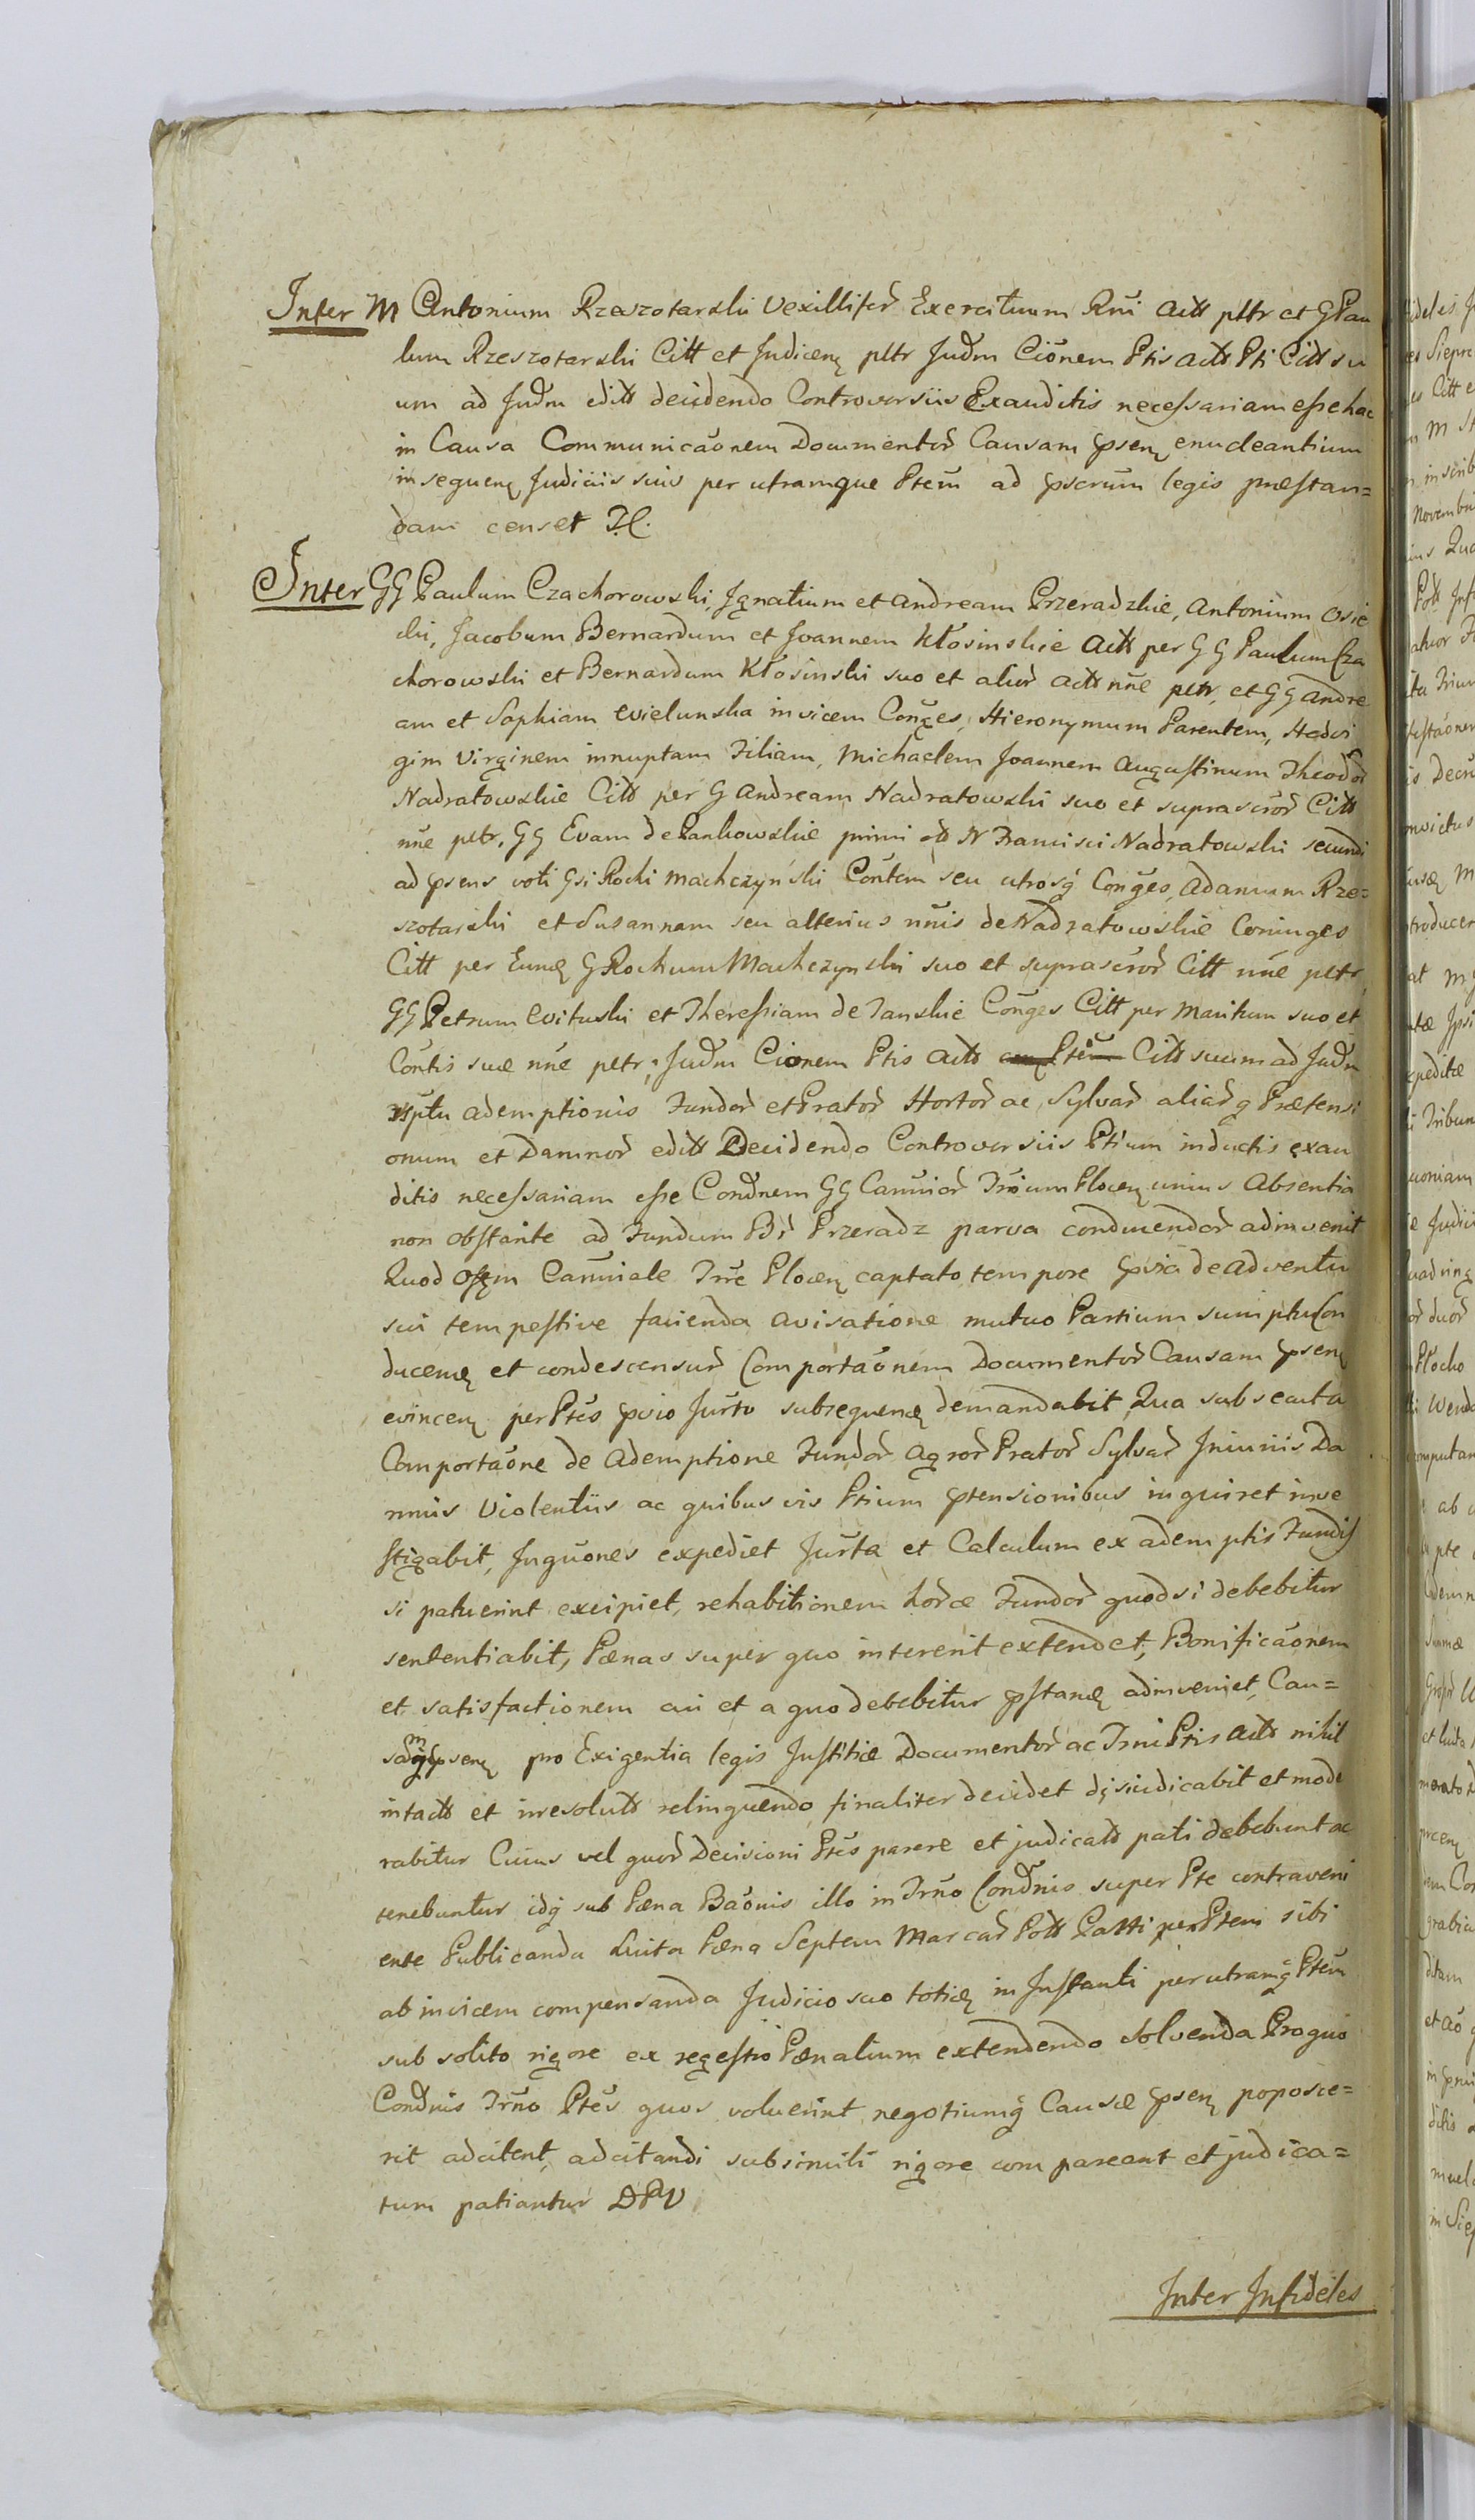 Inter M Antonium Rzeszotarski Vexillifer̃ Exercituum Rni Actt pltr et G Pau
lum Rzeszotarski Citt et Judicem pltr Judm Cionem Ptis Actt Pti Citt su
um ad Judm editt decidendo Controversiis Exauditis necessariam esse hac
in Causa Communicaonem Documentor̃ Causam psen enucleantium
in sequen Judiciis suis per utramque Ptem ad pscrum legis præstan=
dam censet Pl.
Inter GG Paulum Czachorowski, Ignatium et Andream Przeradzkie, Antonium Osie
cki, Jacobum Bernardum et Joannem Kłosinskie Actt per GG Paulum Cza
chorowski et Bernardum Kłosinski suo et alior̃ Actt nne pltr, et GG Andre
am et Sophiam Wielunska invicem Conges, Hieronymum Parentem, Hedvi
gim Virginem innuptam Filiam, Michaelem Joannem Augustinum Theodor̃
Nadratowskie Citt per G Andream Nadratowski suo et suprascror̃ Citt
nne pltr, GG Evam de Pankowskie primi ott N Francisci Nadratowski secundi
ad psens voti Gsi Rochi Machczyński Contem seu utrosq Conges, Adamum Rze=
szotarski et Susannam seu alterius nnis de Nadratowskie Coniuges
Citt per Eund G Rochum Machczynski suo et suprascror̃ Citt nne pltr,
GG Petrum Wituski et Theressiam de Tanskie Conges Citt per Maritum suo et
Contis suæ nne pltr; Judm Cionem Ptis Actt Citt suum ad Judm
rsptu ademptionis Fundor̃ et Prator̃ Hortor̃ ac Sylvar̃ aliar̃q Prætensi
onum et Damnor̃ editt Decidendo Controversiis Ptium inductis exau
ditis necessariam esse Condnem GG Camnior̃ Trrium Plocen unius Absentia
non obstante ad Fundum Br̃ Przeradz parva conducendor̃ adinvenit
Quod Offm Camniale Trre Plocen captato tempore pvia de adventu
sui tempestive facienda avisatione mutuo Partium sumptu Con
ducend et condescensur̃ Comportaonem Documentor̃ Causam psen
evincen per Ptes pvio Jurto subsequend demandabit, Qua subsecuta
Comportaone de Ademptione Fundor̃ Agror̃ Prator̃ Sylvar̃ Iniuriis Da
mnis Violentiis ac quibusvis Ptium ptensionibus inquiret inve
stigabit, Inquones expediet Jurta et Calculum ex ademptis Fundis
si patuerint excipiet, rehabitionem horæ Fundor̃ quod si debebitur
sententiabit, Pænas super quo intererit extendet, Bonificaonem
et satisfactionem cui et a quo debebitur pstand adinveniet, Cau=
samq psen pro Exigentia legis Justitiæ Documentor̃ ac Trmi Ptis Actt nihil
intactt et irresolutt relinquendo finaliter decidet disiudicabit et mode
rabitur Cuius vel quor̃ Decisioni Ptes parere et judicatt pati debebunt ac
tenebuntur idq sub Pæna Baonis illo in Trno Condnis super Pte contraveni
ente Publicanda Luita Pæna Septem Marcar̃ Polt Parti per Ptem sibi
ab invicem compensanda Judicio suo toties in Instanti per utramq Ptem
sub solito rigore ex regestro Pænalium extendendo solvenda Pro quo
Condnis Trno Ptes quos voluerint negotiumq Causæ psen poposce=
rit adcitent, adcitandi sub simili rigore compareant et judica=
tum patiantur DPV
Inter Infideles